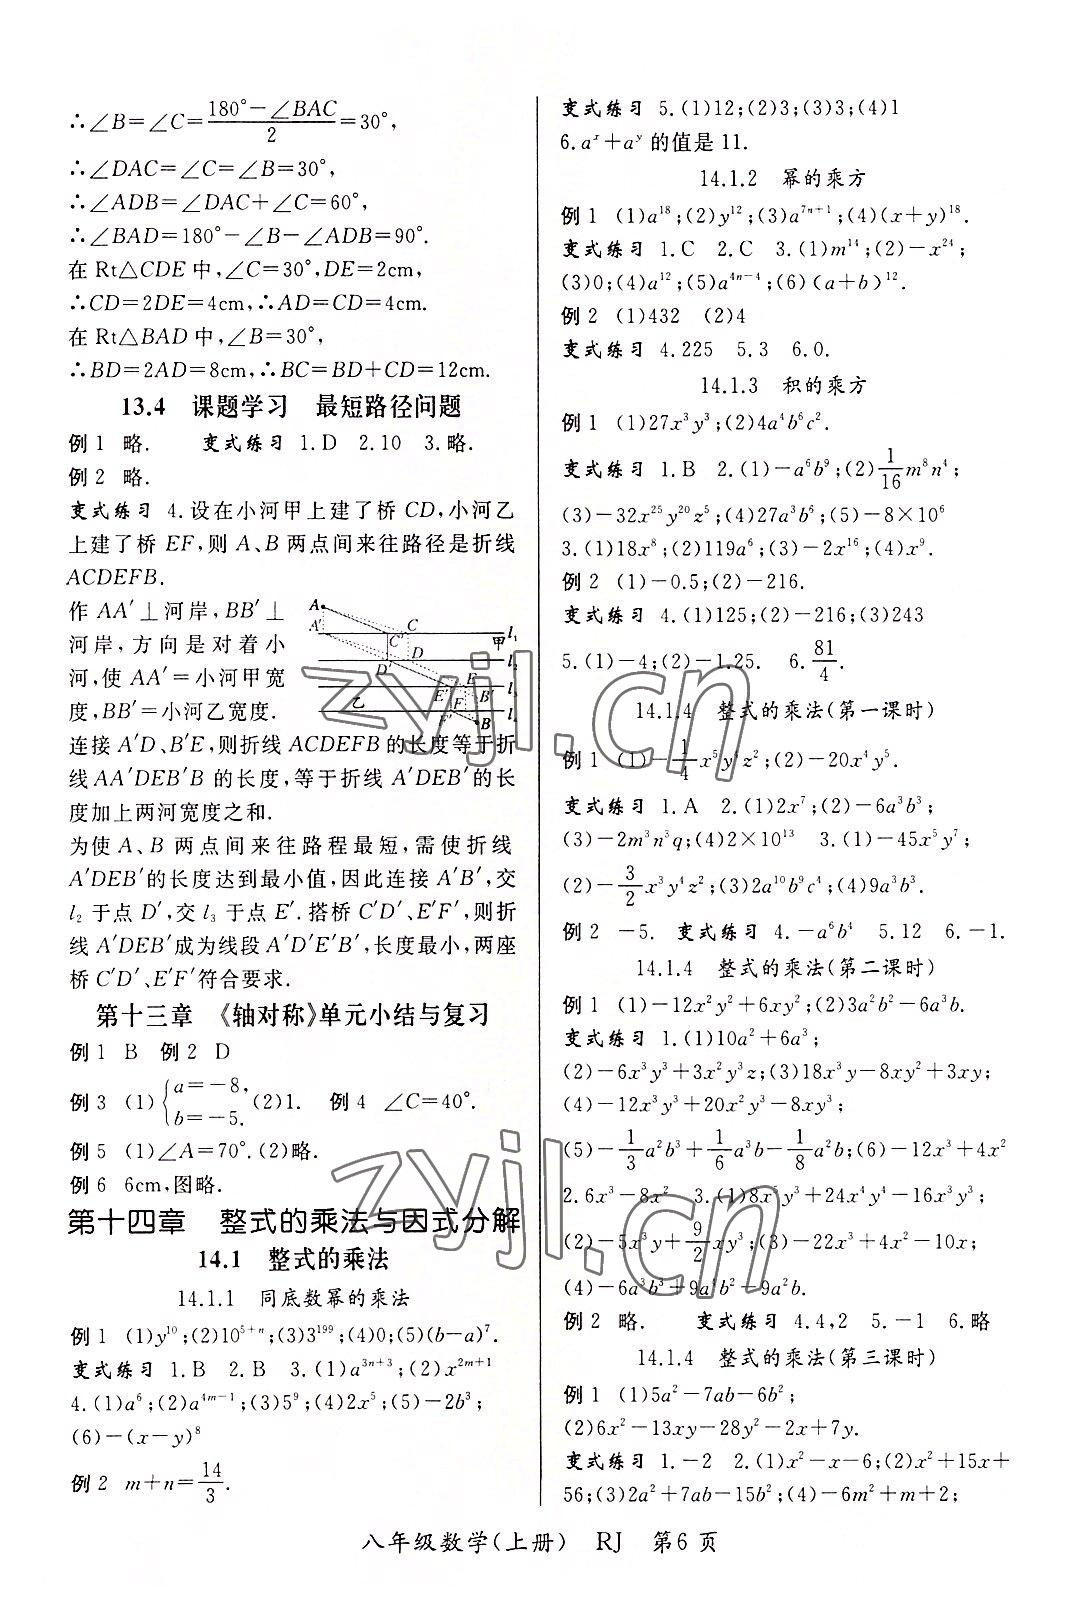 ∴∠B=∠C=(180°-∠BAC)/2=30°,
∴∠DAC=∠C=∠B=30°,
∴∠ADB=∠DAC+∠C=60°,
∴∠BAD=180°-∠B-∠ADB=90°.
在 Rt△CDE 中,∠C=30°,DE=2cm,
∴CD=2DE=4cm,∴AD=CD=4cm.
在 Rt△BAD 中,∠B=30°,
∴BD=2AD=8cm,∴BC=BD+CD=12cm.
13.4 课题学习 最短路径问题
例 1 略. 变式练习 1.D 2.10 3.略.
例 2 略.
变式练习 4.设在小河甲上建了桥 CD,小河乙
上建了桥 EF,则 A、B 两点间来往路径是折线
ACDEFB.
作 AA′⊥河岸,BB′⊥
河岸,方向是对着小
河,使 AA′=小河甲宽
度,BB′=小河乙宽度.
A A′ C′ C 甲 l₁
D′ D l₂
E′ E B′ l₃
乙 F′ F B l₄
连接 A′D、B′E,则折线 ACDEFB 的长度等于折
线 AA′DEB′B 的长度,等于折线 A′DEB′的长
度加上两河宽度之和.
为使 A、B 两点间来往路程最短,需使折线
A′DEB′的长度达到最小值,因此连接 A′B′,交
l₂ 于点 D′,交 l₃ 于点 E′.搭桥 C′D′、E′F′,则折
线 A′DEB′成为线段 A′D′E′B′,长度最小,两座
桥 C′D′、E′F′符合要求.
第十三章 《轴对称》单元小结与复习
例 1 B 例 2 D
例 3 (1){a=-8, b=-5. (2)1. 例 4 ∠C=40°.
例 5 (1)∠A=70°.(2)略.
例 6 6cm,图略.
第十四章 整式的乘法与因式分解
14.1 整式的乘法
14.1.1 同底数幂的乘法
例 1 (1)y¹⁰;(2)10⁵⁺ⁿ;(3)3¹⁹⁹;(4)0;(5)(b-a)⁷.
变式练习 1.B 2.B 3.(1)a³ⁿ⁺³;(2)x²ᵐ⁺¹
4.(1)a⁶;(2)a⁴ᵐ⁻¹;(3)5⁹;(4)2x⁵;(5)-2b³;
(6)-(x-y)⁸
例 2 m+n=14/3.
变式练习 5.(1)12;(2)3;(3)3;(4)1
6.aˣ+aʸ 的值是 11.
14.1.2 幂的乘方
例 1 (1)a¹⁸;(2)y¹²;(3)a⁷ⁿ⁺¹;(4)(x+y)¹⁸.
变式练习 1.C 2.C 3.(1)m¹⁴;(2)-x²⁴;
(3)0;(4)a¹²;(5)a⁴ⁿ⁻⁴;(6)(a+b)¹².
例 2 (1)432 (2)4
变式练习 4.225 5.3 6.0.
14.1.3 积的乘方
例 1 (1)27x³y³;(2)4a⁴b⁶c².
变式练习 1.B 2.(1)-a⁶b⁹;(2)1/16 m⁸n⁴;
(3)-32x²⁵y²⁰z⁵;(4)27a³b⁶;(5)-8×10⁶
3.(1)18x⁸;(2)119a⁶;(3)-2x¹⁶;(4)x⁹.
例 2 (1)-0.5;(2)-216.
变式练习 4.(1)125;(2)-216;(3)243
5.(1)-4;(2)-1.25. 6.81/4.
14.1.4 整式的乘法(第一课时)
例 1 (1)-1/4 x⁵y⁴z²;(2)-20x⁴y⁵.
变式练习 1.A 2.(1)2x⁷;(2)-6a³b³;
(3)-2m³n⁵q;(4)2×10¹³ 3.(1)-45x⁵y⁷;
(2)-3/2 x³y⁴z²;(3)2a¹⁰b⁹c⁴;(4)9a³b³.
例 2 -5. 变式练习 4.-a⁶b⁴ 5.12 6.-1.
14.1.4 整式的乘法(第二课时)
例 1 (1)-12x²y²+6xyz;(2)3a²b²-6a³b.
变式练习 1.(1)10a²+6a³;
(2)-6x³y³+3x²y³z;(3)18x³y-8xy²+3xy;
(4)-12x³y³+20x²y²-8xy³;
(5)-1/3 a²b³+1/6 a³b-1/8 a²b;(6)-12x³+4x²
2.6x³-8x² 3.(1)8x⁵y³+24x⁴y-16x³y³;
(2)-5x³y+9/2 xy³;(3)-22x³+4x²-10x;
(4)-6a³b³+9a²b²-9a²b.
例 2 略. 变式练习 4.4,2 5.-1 6.略
14.1.4 整式的乘法(第三课时)
例 1 (1)5a²-7ab-6b²;
(2)6x²-13xy-28y²-2x+7y.
变式练习 1.-2 2.(1)x²-x-6;(2)x²+15x+
56;(3)2a²+7ab-15b²;(4)-6m²+m+2;
八年级数学(上册) RJ 第6页
zyjl.cn
zyjl.cn